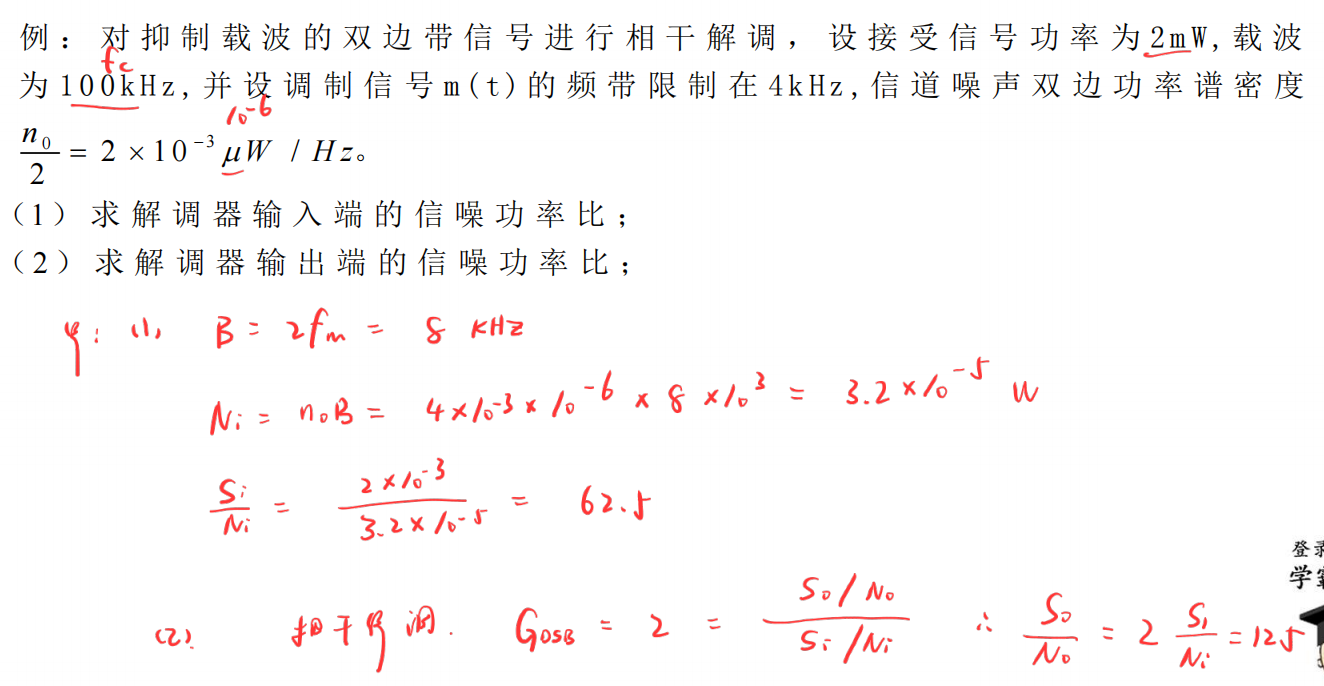 例：对抑制载波的双边带信号进行相干解调，设接受信号功率为2mW,载波
fc
为100kHz,并设调制信号m(t)的频带限制在4kHz,信道噪声双边功率谱密度
10⁻⁶
n₀/2 = 2×10⁻³ μW / Hz。
（1）求解调器输入端的信噪功率比；
（2）求解调器输出端的信噪功率比；
(1) B = 2fm = 8 KHz
Ni = n₀B = 4×10⁻³×10⁻⁶×8×10³ = 3.2×10⁻⁵ W
Si/Ni = 2×10⁻³/3.2×10⁻⁵ = 62.5
登录
(2). 相干解调. GDSB = 2 = So/No / Si/Ni ∴ So/No = 2 Si/Ni = 125